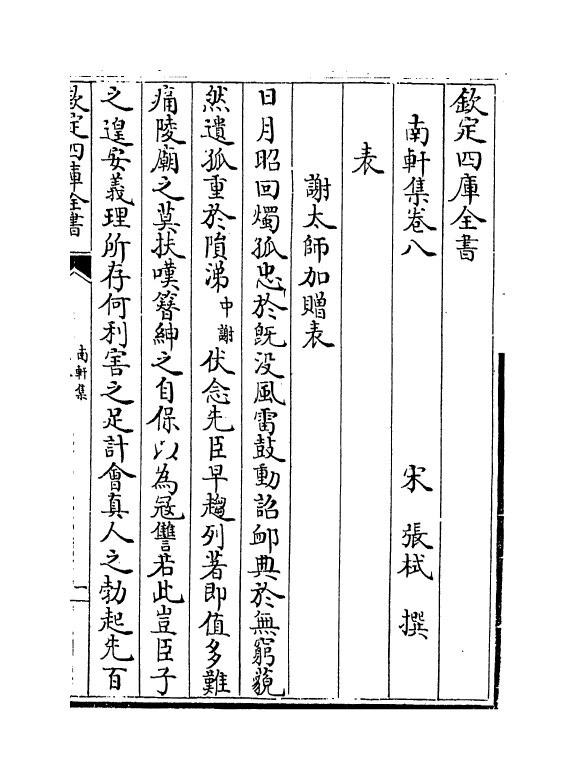 欽定四庫全書
南軒集卷八
宋 張栻 撰
表
謝太師加贈表
日月昭回燭孤忠於既没風雷鼓動詔卹典於無窮藐
然遺孤重於隕涕中謝伏念先臣早趨列著即值多難
痛陵廟之莫扶嘆簪紳之自保以為冦讐若此豈臣子
之遑安義理所存何利害之足計會真人之勃起先百
欽定四庫全書
南軒集
一